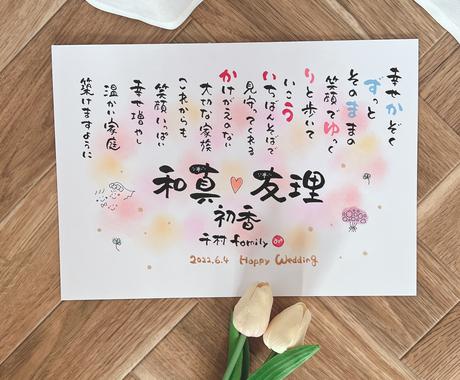 幸せかぞく
ずっと
そのままの
笑顔でゆっく
りと歩いて
いこう
いちばんそばで
見守ってくれる
かけがえのない
大切な家族
これからも
笑顔いっぱい
幸せ増やし
温かい家庭
築けますように
和真♡友理
初香
千村 family
2022.6.4 Happy Wedding